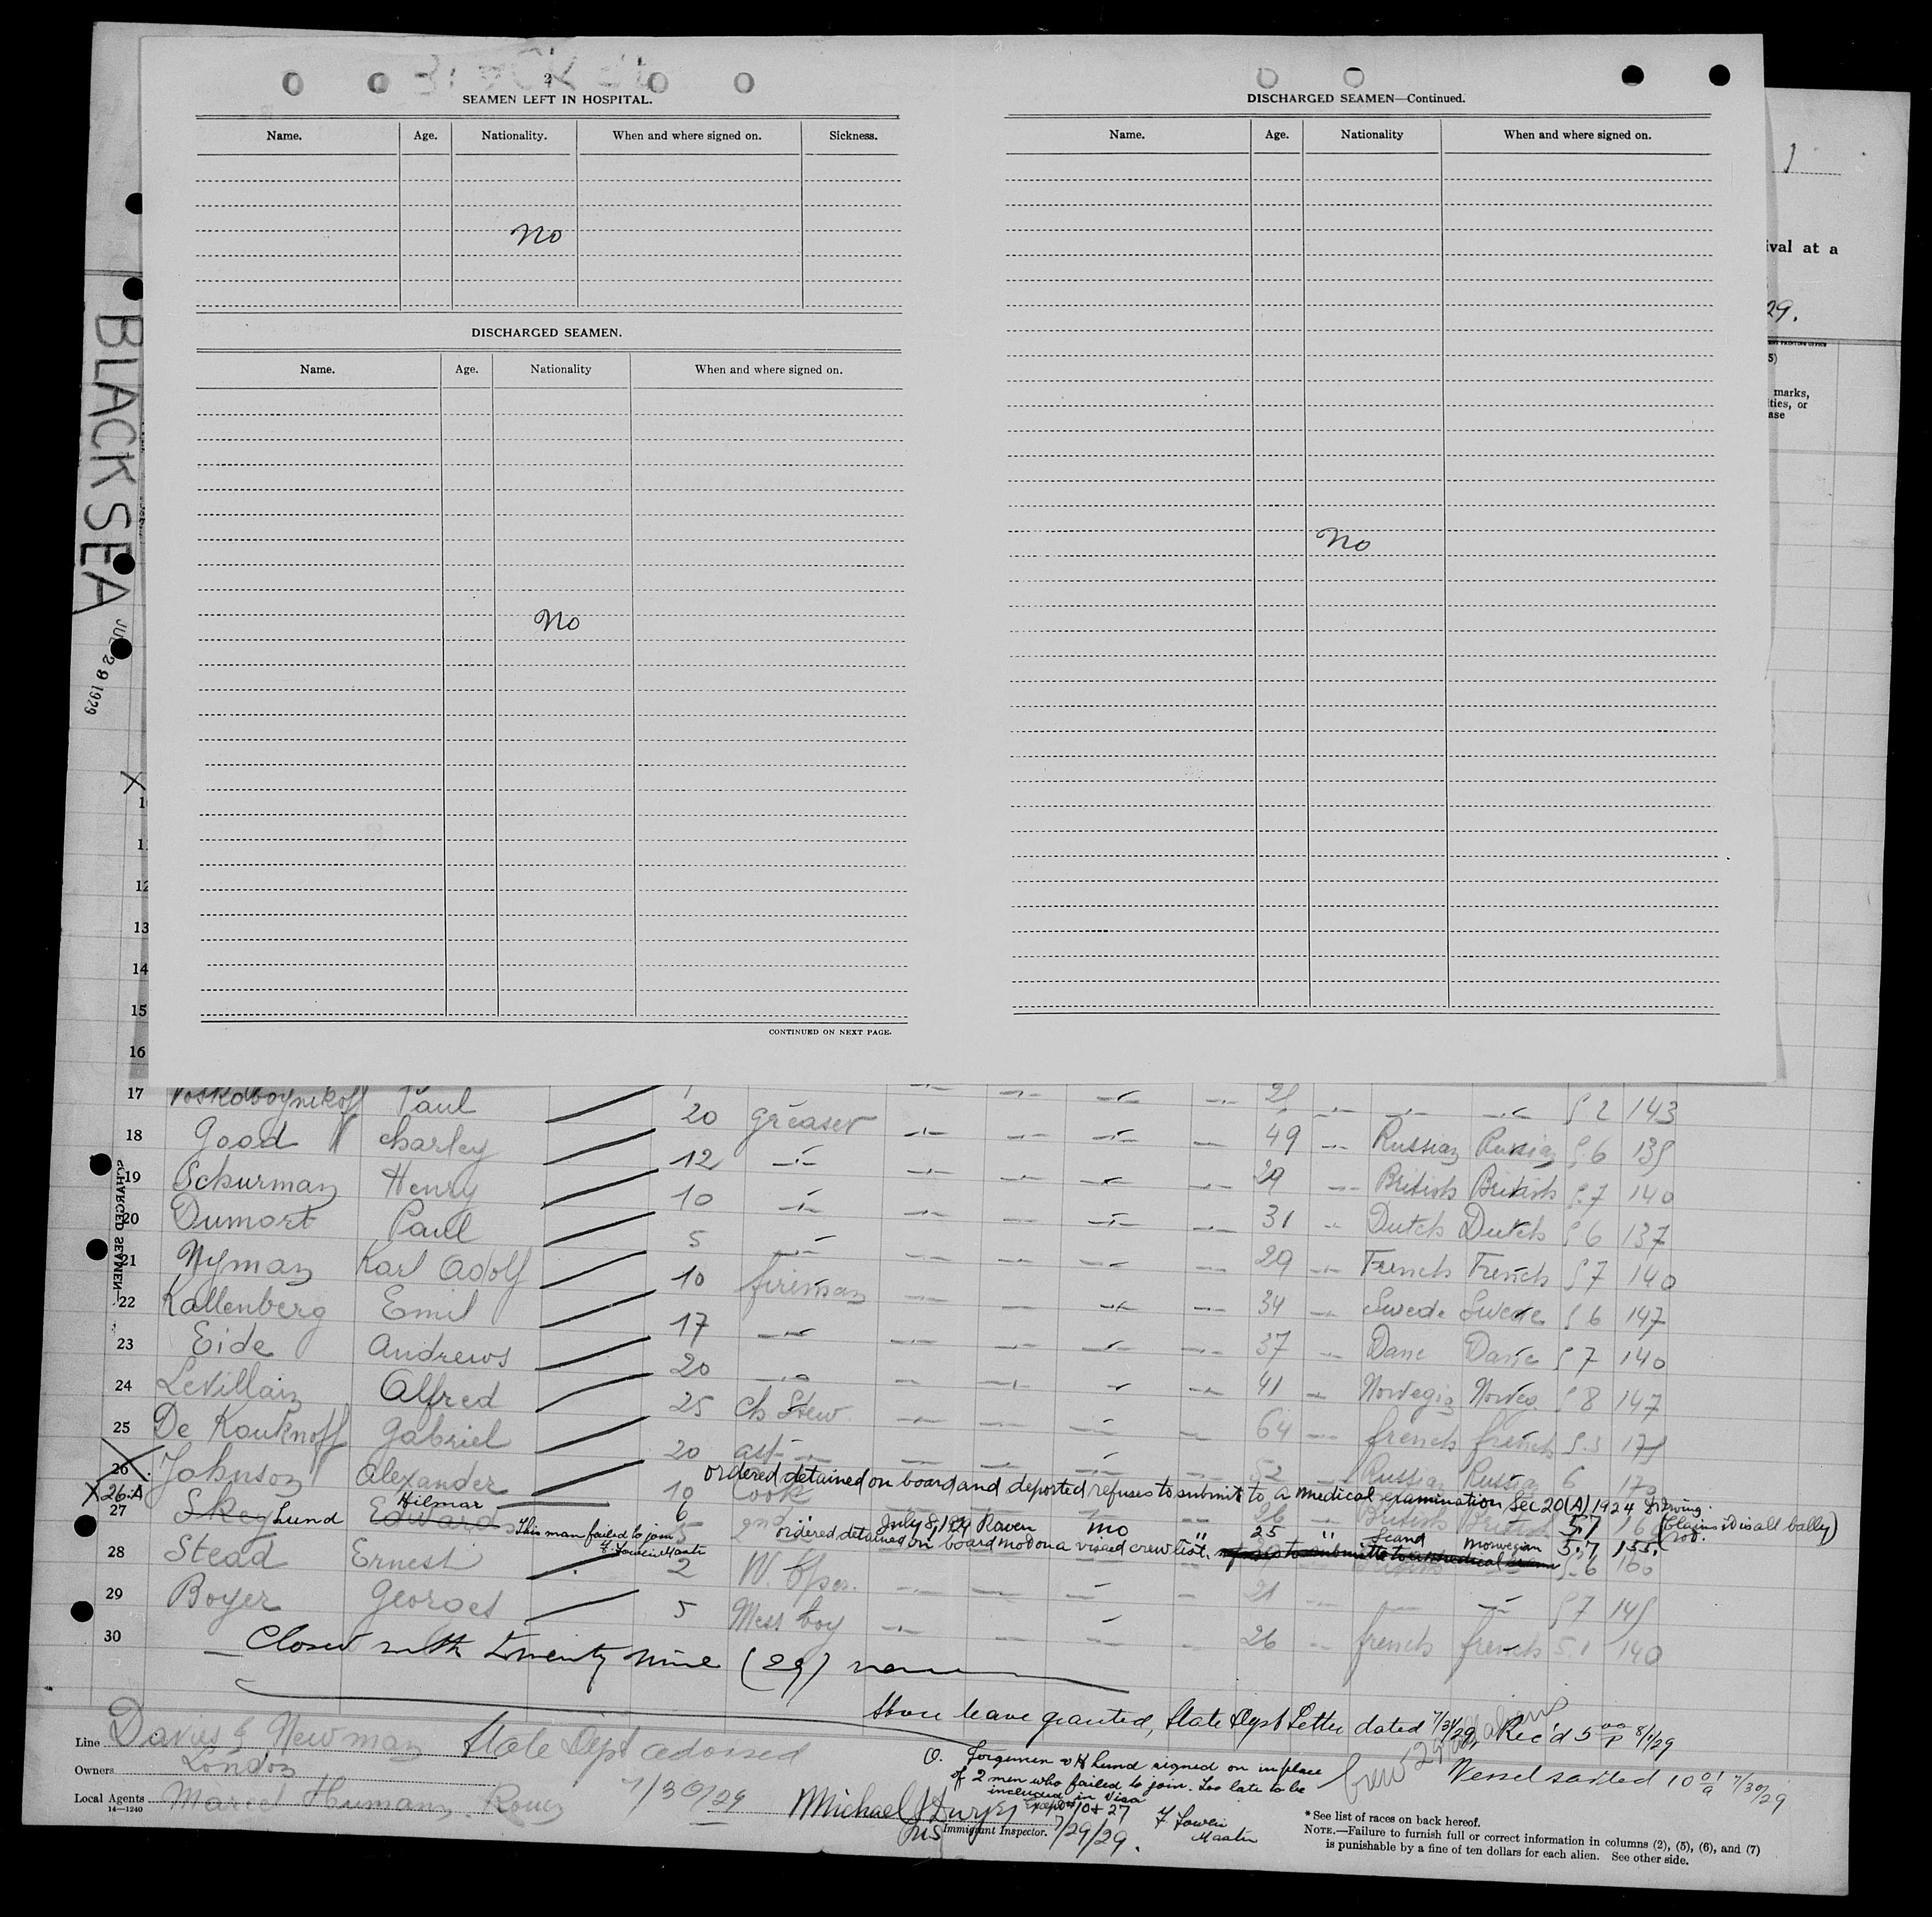 2
SEAMEN LEFT IN HOSPITAL.
Name. Age. Nationality. When and where signed on. Sickness.
No
DISCHARGED SEAMEN.
Name. Age. Nationality When and where signed on.
No
CONTINUED ON NEXT PAGE.
DISCHARGED SEAMEN—Continued.
Name. Age. Nationality When and where signed on.
No
1
ival at a
29.
5)
marks,
ities, or
ase
BLACK SEA
JUL 29 1929
X
12
13
14
15
16
17 Voskoboynikoff Paul 20 greaser 28 5 2 143
18 Good Charley 12 49 Russian Russian 5.6 135
19 Schurman Henry 10 29 British British 5.7 140
20 Dumort Paul 5 31 Dutch Dutch 5 6 137
21 Nyman Karl Adolf 10 fireman 29 French French 5 7 140
22 Kallenberg Emil 17 34 Swede Swede 5 6 147
23 Eide Andrews 20 37 Dane Dane 5 7 140
24 Levillain Alfred 25 ch Stew. 41 Norwegia Norweg 5 8 147
25 De Kouknoff Gabriel 20 ast 64 french french 5.5 175
26 Johnson Alexander 10 Cook 52 Russia Russia 6 170
ordered detained on board and deported refuses to submit to a medical examination Sec 20(A) 1924
X 26.A
27 Skey Lund Edwards Hilmar 6 July 8, 1929 Rouen no " 25 " Scand Norwegian 5.7 155.
This man failed to join
ordered detained on board not on a visaed crew list.
28 Stead Ernest 2 W. Oper. 5.6 160
29 Boyer Georges 5 Mess boy 21 5 7 145
30 26 french french 5.1 140
Closed with Twenty nine (29) names
Shore leave granted, State Dept Letter dated 7/31/29, Rec'd 5 00 P 8/1/29
Line Davies & Newman State Dept advised
Owners London 7/30/29
Local Agents Marcel Humann, Rouen
14—1240
O. Jorgensen & H Lund signed on in place
of 2 men who failed to join. Too late to be
included in Visa
Except #10 & 27
Michael J Dwyer
Immigrant Inspector. 7/29/29.
Master
Vessel sailed 10 01 a 7/30/29
*See list of races on back hereof.
NOTE.—Failure to furnish full or correct information in columns (2), (5), (6), and (7)
is punishable by a fine of ten dollars for each alien. See other side.